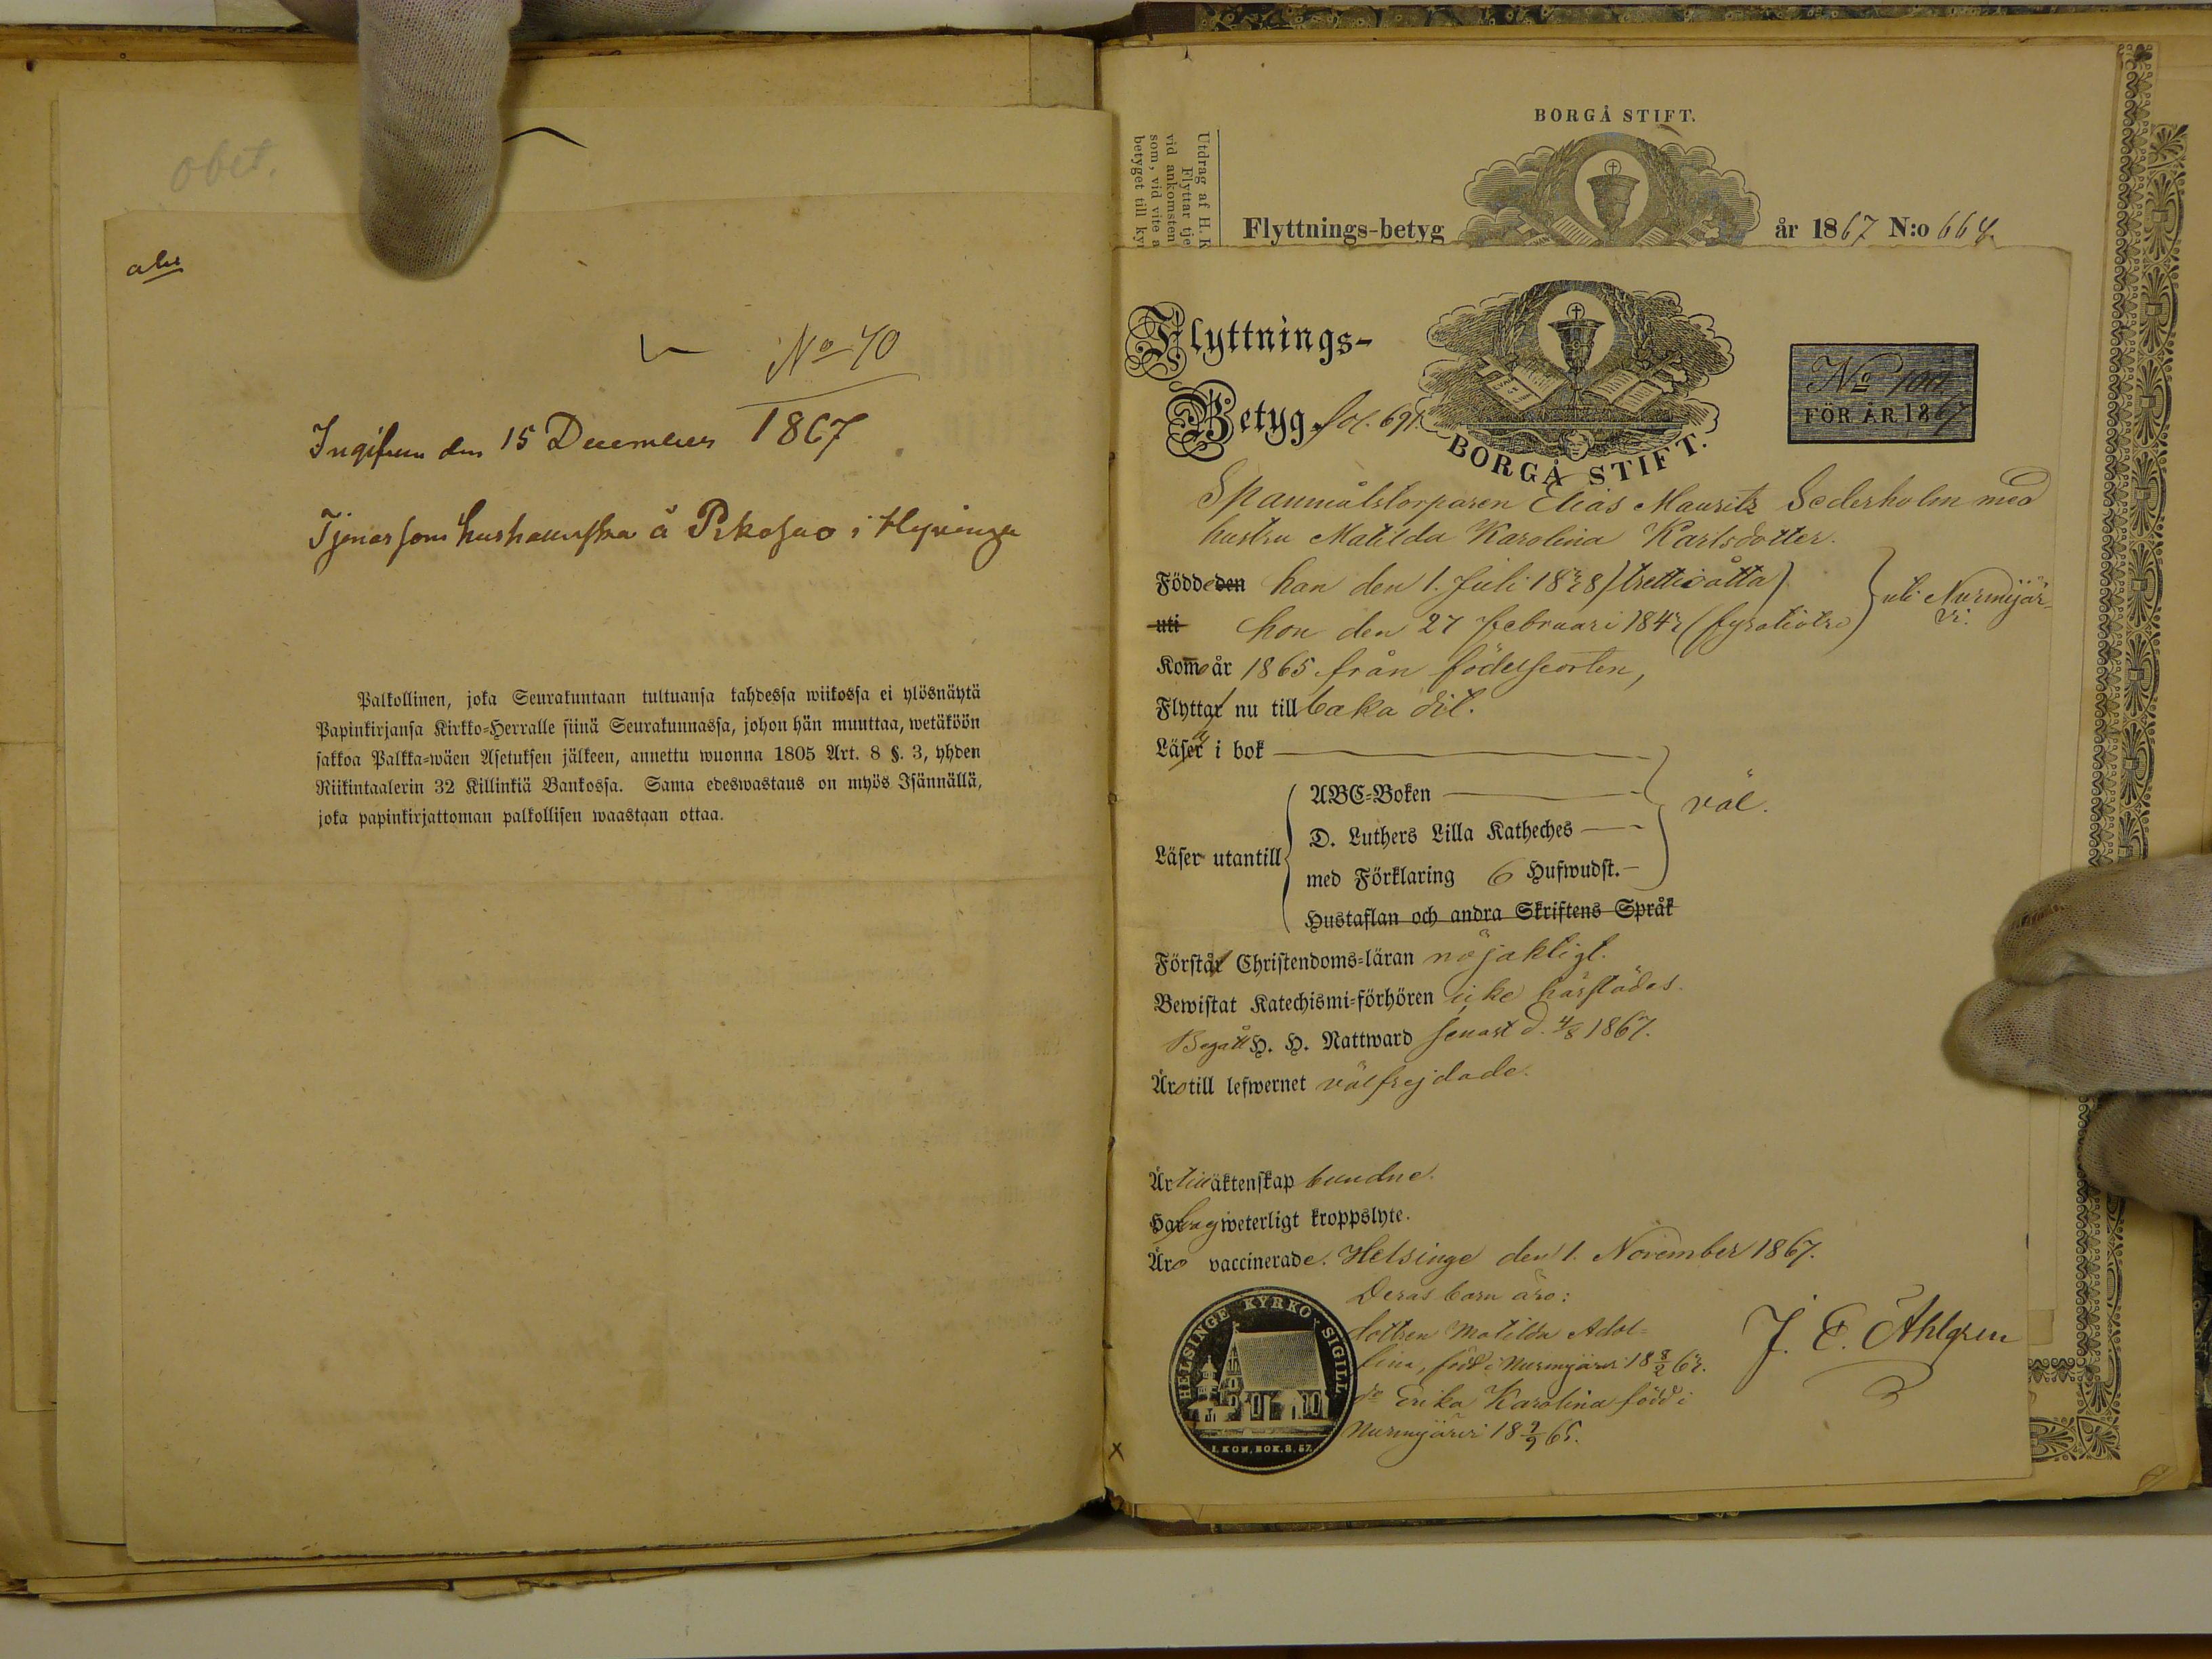 obet.
abs
No 40
Ingifven den 15 December 1867
Tjenar som hushållerska å
Palkollinen, joka Seurakuntaan tultuansa kahdessa wiikossa ei ylösnäytä
Papinkirjansa Kirkko-Herralle siinä Seurakunnassa, johon hän muuttaa, wetäköön
sakkoa Palkka-wäen Asetuksen jälkeen, annettu wuonna 1805 Art. 8 §. 3, yhden
Riikintaalerin 32 Killinkiä Bankossa. Sama edeswastaus on myös Isännällä,
joka papinkirjattoman palkollisen waastaan ottaa.
Utdrag af H. K
Flyttar tje
vid ankomsten
som, vid vite a
betyget till kyr
BORGÅ STIFT.
Flyttnings-betyg år 1867 N:o 664.
Flyttnings-
Betyg. fol. 691.
BORGÅ STIFT.
No
FÖR ÅR 1867
Spanmålstorparen Elias Mauritz Sederholm med
hustru Matilda Karolina Karlsdotter.
Födde den han den 1. Juli 1838 (trettioåtta)
uti hon den 27 Februari 1843 (fyratiotre) uti Nurmijär-
vi.
Kommo år 1865 från födelseorten,
Flytta nu tillbaka dit.
Läsa i bok
ABC-Boken
D. Luthers Lilla Katheches
Läser utantill
med Förklaring 6 Hufwudst.
väl.
Hustaflan och andra Skriftens Språk
Förstå Christendoms-läran nöjaktigt.
Bewistat Katechismi-förhören icke härstädes.
Begått H. H. Nattward senast d. 4/8 1867.
Äro till lefwernet välfrejdade.
Är till äktenskap bundne.
Hafva ej weterligt kroppslyte.
Äro vaccinerade. Helsinge den 1. November 1867.
Deras barn äro:
dottren Matilda Adol-
fina, född i Nurmijärvi 18 8/2 63.
do Erika Karolina född i
Nurmijärvi 18 9/9 65.
J. E. Åhlgren
HELSINGE KYRKO SIGILL
1. KON. BOK. 8. 57.
x